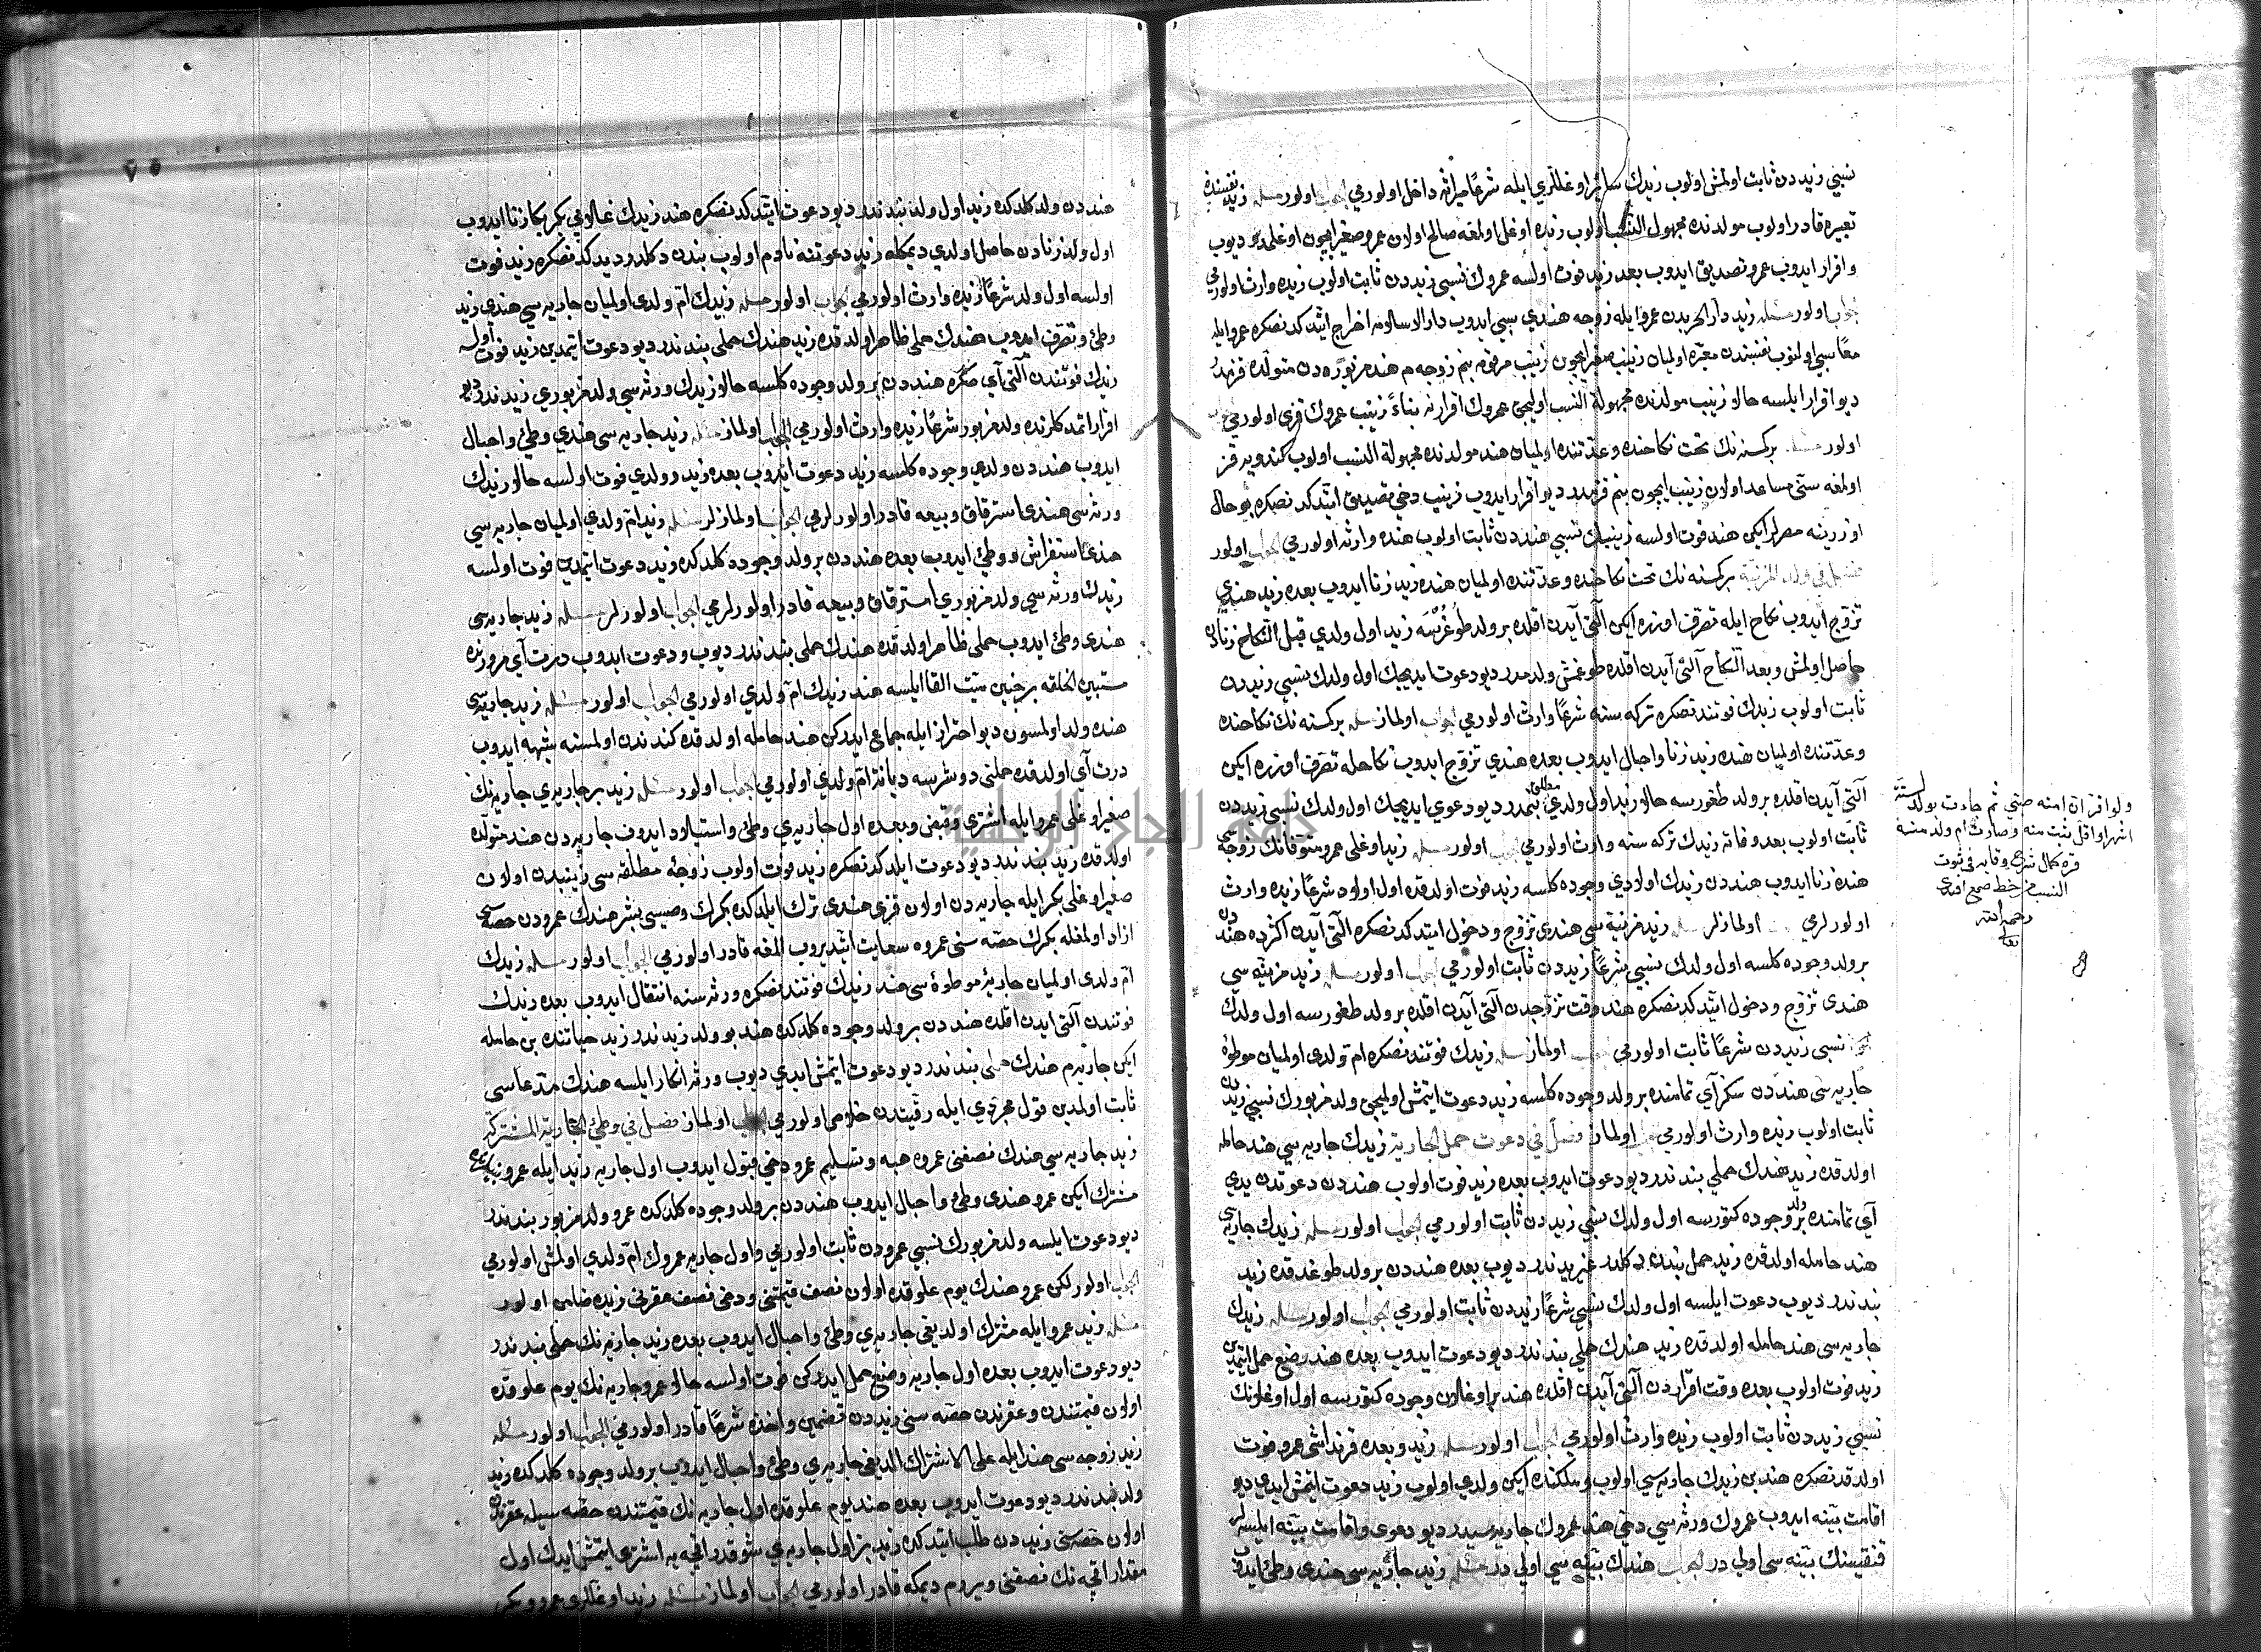 نسبي زيددن ثابت اولمش اولوب زيدك سائر اوغللري ايله شرعًا ميراثه داخل اولورمي الجواب اولور مسئله زيد نفسنده
تعبيره قادر اولوب مولدنده مجهول النسب اولوب زيده اوغل اولمغه صالح اولان عمرو صغير ايچون اوغلمدر ديوب
و اقرار ايدوب عمرو تصديق ايدوب بعده زيد فوت اولسه عمروك نسبي زيددن ثابت اولوب زيده وارث اولورمي
الجواب اولور مسئله زيد دار الحربدن عمرو ايله زوجه هندي سبي ايدوب دار الاسلامه اخراج ايتدكدنصكره عمرو ايله
معًا سبي اولنوب نفسندن معبّره اولميان زينب صغيره ايچون زينب مرقومه بنم زوجه م هند مزبوره دن متولّده قزمدر
ديو اقرار ايلسه حالا زينب مولدنده مجهولة النسب اوليجق عمروك اقرارنه بناءً زينب عمروك قزى اولورمي الجواب
اولور مسئله بركسنه نك تحت نكاحنده و عدّتنده اولميان هند مولدنده مجهولة النسب اولوب كندويه قز
اولمغه سنّى مساعد اولان زينب ايچون بنم قزمدر ديو اقرار ايدوب زينب دخي تصديق ايتدكدنصكره بو حال
اوزرينه مصرلر ايكن هند فوت اولسه زينبك نسبي هنددن ثابت اولوب هنده وارثه اولورمي الجواب اولور
فصل في ولد المزنيّة بركسنه نك تحت نكاحنده و عدّتنده اولميان هنده زيد زنا ايدوب بعده زيد هندي
تزوّج ايدوب نكاح ايله تصرّف اوزره ايكن آلتي آيدن اقلده بر ولد طوغرسه زيد اول ولدي قبل النكاح زنادن
حاصل اولمش و بعد النكاح آلتي آيدن اقلده طوغمش ولدمدر ديو دعوت ايديجك اول ولدك نسبي زيددن
ثابت اولوب زيدك فوتندنصكره تركه سنه شرعًا وارث اولورمي الجواب اولماز مسئله بركسنه نك نكاحنده
و عدّتنده اولميان هنده زيد زنا و احبال ايدوب بعده هندي تزوّج ايدوب نكاحله تصرّف اوزره ايكن
آلتي آيدن اقلده بر ولد طغورسه حالا زيد اول ولدي مطلقا بنمدر ديو دعوي ايديجك اول ولدك نسبي زيددن
ثابت اولوب بعد وفاته زيدك تركه سنه وارث اولورمي الجواب اولور مسئله زيد اوغلى عمرو متوفانك زوجه سي
هنده زنا ايدوب هنددن زيدك اولادي وجوده كلسه زيد فوت اولدقده اول اولاد شرعًا زيده وارث
اولورلرمي الجواب اولمازلر مسئله زيد مزنيّه سي هندي تزوّج و دخول ايتدكدنصكره آلتي آيدن اكثرده هنددن
بر ولد وجوده كلسه اول ولدك نسبي شرعًا زيددن ثابت اولورمي الجواب اولور مسئله زيد مزنيّه سي
هندي تزوّج و دخول ايتدكدنصكره هند وقت تزوجدن آلتي آيدن اقلده بر ولد طغورسه اول ولدك
نسبي زيددن شرعًا ثابت اولورمي الجواب اولماز مسئله زيدك فوتندنصكره ام ولدي اولميان موطوءه
جاريه سي هنددن سكز آي تمامنده بر ولد وجوده كلسه زيد دعوت ايتمش اوليجق ولد مزبورك نسبي زيددن
ثابت اولوب زيده وارث اولورمي الجواب اولماز فصل في دعوت حمل الجارية زيدك جاريه سي هند حامله
اولدقده زيد هندك حملي بندندر ديو دعوت ايدوب بعده زيد فوت اولوب هنددن دعوتدن يدي
آي تمامنده بر ولد وجوده كتورسه اول ولدك نسبي زيددن ثابت اولورمي الجواب اولور مسئله زيدك جاريه سي
هند حامله اولدقده زيد حمل بندن دكلدر غيريدندر ديوب بعده هنددن بر ولد طوغدقده زيد
بندندر ديوب دعوت ايلسه اول ولدك نسبي شرعًا زيددن ثابت اولورمي الجواب اولور مسئله زيدك
جاريه سي هند حامله اولدقده زيد هندك حملي بندندر ديو دعوت ايدوب بعده هند وضع حمل ايتمدين
زيد فوت اولوب بعده وقت اقراردن آلتي آيدن اقلده هند بر اوغلان وجوده كتورسه اول اوغلانك
نسبي زيددن ثابت اولوب زيده وارث اولورمي الجواب اولور مسئله زيد و بعده قرنداشى عمرو فوت
اولدقدنصكره هند بن زيدك جاريه سي اولوب و ملكنده ايكن ولدي اولوب زيد دعوت ايتمش ايدي ديو
اقامت بيّنه ايدوب عمروك ورثه سي دخي هند عمروك جاريه سيدر ديو دعوى و اقامت بيّنه ايلسه لر
قنقيسنك بيّنه سى اولي در الجواب هندك بيّنه سي اولي در مسئله زيد جاريه سي هندي وطئ ايدوب
ولو اقرّ ان امته حبلي ثم جاءت بولد لستة
اشهر او اقل يثبت منه و صارت ام ولد منه
قره كمال شرح وقايه في ثبوت
النسب من خط صنع افندى
رحمه الله
٧٥
هنددن ولد كلدكده زيد اول ولد بندندر ديو دعوت ايتدكدنصكره هند زيدك غلامي بكر بكا زنا ايدوب
اول ولد زنادن حاصل اولدي ديمكله زيد دعوتنه نادم اولوب بندن دكلدر ديدكدنصكره زيد فوت
اولسه اول ولد شرعًا زيده وارث اولورمي الجواب اولور مسئله زيدك ام ولدى اولميان جاريه سي هندي زيد
وطئ و تصرف ايدوب هندك حملي ظاهر اولدقده زيد هندك حملي بندندر ديو دعوت ايتمدين زيد فوت اولسه
زيدك فوتندن آلتي آي صكره هنددن بر ولد وجوده كلسه حالا زيدك ورثه سي ولد مزبوري زيددندر ديو
اقرار ايتدكلرنده ولد مزبور شرعًا زيده وارث اولورمي الجواب اولماز مسئله زيد جاريه سي هندي وطئ و احبال
ايدوب هنددن ولدي وجوده كلسه زيد دعوت ايدوب بعده زيد و ولدي فوت اولسه حالا زيدك
ورثه سي هندي استرقاق و بيعه قادر اولورلرمي الجواب اولمازلر مسئله زيد ام ولدي اولميان جاريه سي
هندي استفراش و وطئ ايدوب بعده هنددن بر ولد وجوده كلدكده زيد دعوت ايتمدين فوت اولسه
زيدك ورثه سي ولد مزبوري استرقاق و بيعه قادر اولورلرمي الجواب اولورلر مسئله زيد جاريه سي
هندي وطئ ايدوب حملي ظاهر اولدقده هندك حملي بندندر ديوب و دعوت ايدوب درت آي مرورنده
مستبين الخلقه بر جنين ميّت القا ايلسه هند زيدك ام ولدي اولورمي الجواب اولور مسئله زيد جاريه سي
هنده ولد اولمسون ديو احتراز ايله جماع ايدركن هند حامله اولدقده كندندن اولمسنه شبهه ايدوب
درت آي اولدقده حملنى دوشرسه ديانةً ام ولدي اولورمي الجواب اولور مسئله زيد بر جاريه ي جاريه نك
صغير اوغلى عمرو ايله اشترى و قبض و بعده اول جاريه ي وطئ و استيلاد ايدوب جاريه دن هند متولّده
اولدقده زيد بندندر ديو دعوت ايلدكدنصكره زيد فوت اولوب زوجۀ مطلقه سي زينبدن اولان
صغير اوغلى بكر ايله جاريه دن اولان قزى هندى ترك ايلدكده بكرك وصيسى بشر هندك عمرودن حصه سي
ازاد اولمغله بكرك حصّه سنى عمروه سعايت ايتديروب المغه قادر اولورمي الجواب اولور مسئله زيدك
ام ولدى اولميان جاريۀ موطوءه سي هند زيدك فوتندنصكره ورثه سنه انتقال ايدوب بعده زيدك
فوتندن آلتي ايدن اقلده هنددن بر ولد وجوده كلدكده هند بو ولد زيددندر زيد حياتنده بن حامله
ايكن جاريه م هندك حملى بندندر ديو دعوت ايتمش ايدي ديوب ورثه انكار ايلسه هندك مدّعاسى
ثابت اولمدين قول مجرّدي ايله رقيتدن خلاص اولورمي الجواب اولماز فصل في وطئ الجارية المشتركة
زيد جاريه سي هندك نصفنى عمروه هبه و تسليم عمرو دخي قبول ايدوب اول جاريه زيد ايله عمرو بيننده
مشترك ايكن عمرو هندى وطئ و احبال ايدوب هنددن بر ولد وجوده كلدكده عمرو ولد مزبور بندندر
ديو دعوت ايلسه ولد مزبورك نسبي عمرودن ثابت اولورمي و اول جاريه عمروك ام ولدي اولمش اولورمي
الجواب اولور لكن عمرو هندك يوم علوقده اولان نصف قيمتنى و دخي نصف عقرنى زيده ضامن اولور
مسئله زيد عمرو ايله مشترك اولديغى جاريه ي وطئ و احبال ايدوب بعده زيد جاريه نك حملى بندندر
ديو دعوت ايدوب بعده اول جاريه وضع حمل ايدركن فوت اولسه حالا عمرو جاريه نك يوم علوقده
اولان قيمتندن و عقرندن حصّه سنى زيددن تضمين و اخذه شرعًا قادر اولورمي الجواب اولور مسئله
زيد زوجه سي هند ايله على الاشتراك الديغى جاريه ي وطئ و احبال ايدوب بر ولد وجوده كلدكده زيد
ولد بندندر ديو دعوت ايدوب بعده هند يوم علوقده اول جاريه نك قيمتندن حصّه سيله عقرندن
اولان حصّه سنى زيددن طلب ايتدكده زيد بز اول جاريه ي شو قدر اقچه يه اشترى ايتمش ايدك اول
مقدار اقچه نك نصفنى ويررم ديمكه قادر اولورمي الجواب اولماز مسئله زيد اوغللرى عمرو و بكر